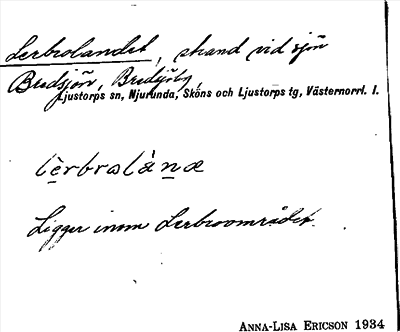 Lerbrolandet, strand vid sjön
Bredsjön, Bredsjöby,
Ljustorps sn, Njurunda, Sköns och Ljustorps tg, Västernorrl. l.
lèrbrolànæ
Ligger inom Lerbroområdet.
ANNA-LISA ERICSON 1934